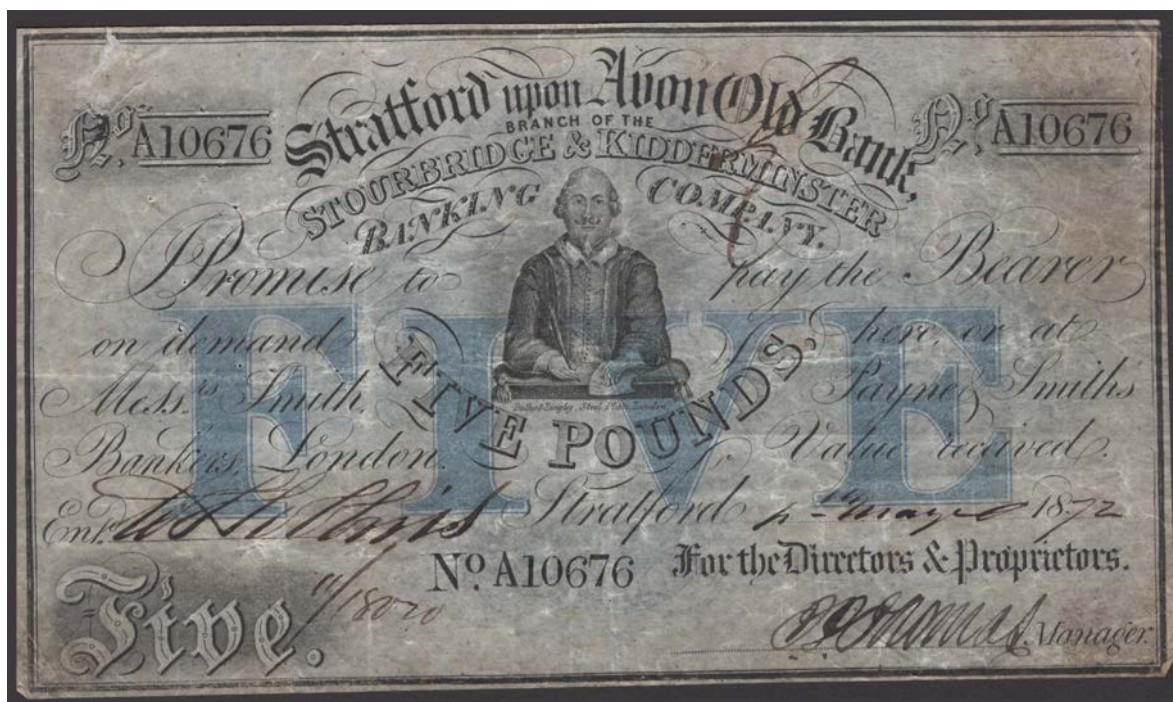 Nº A10676
Nº A10676
Stratford upon Avon Old Bank,
BRANCH OF THE
STOURBRIDGE & KIDDERMINSTER
BANKING COMPANY.
I Promise to pay the Bearer
on demand FIVE POUNDS, here, or at
Mess.rs Smith, Payne & Smiths
Bankers, London. Value received.
FIVE
Ent.d Stratford May 1872
Nº A10676 For the Directors & Proprietors.
Five. Manager.